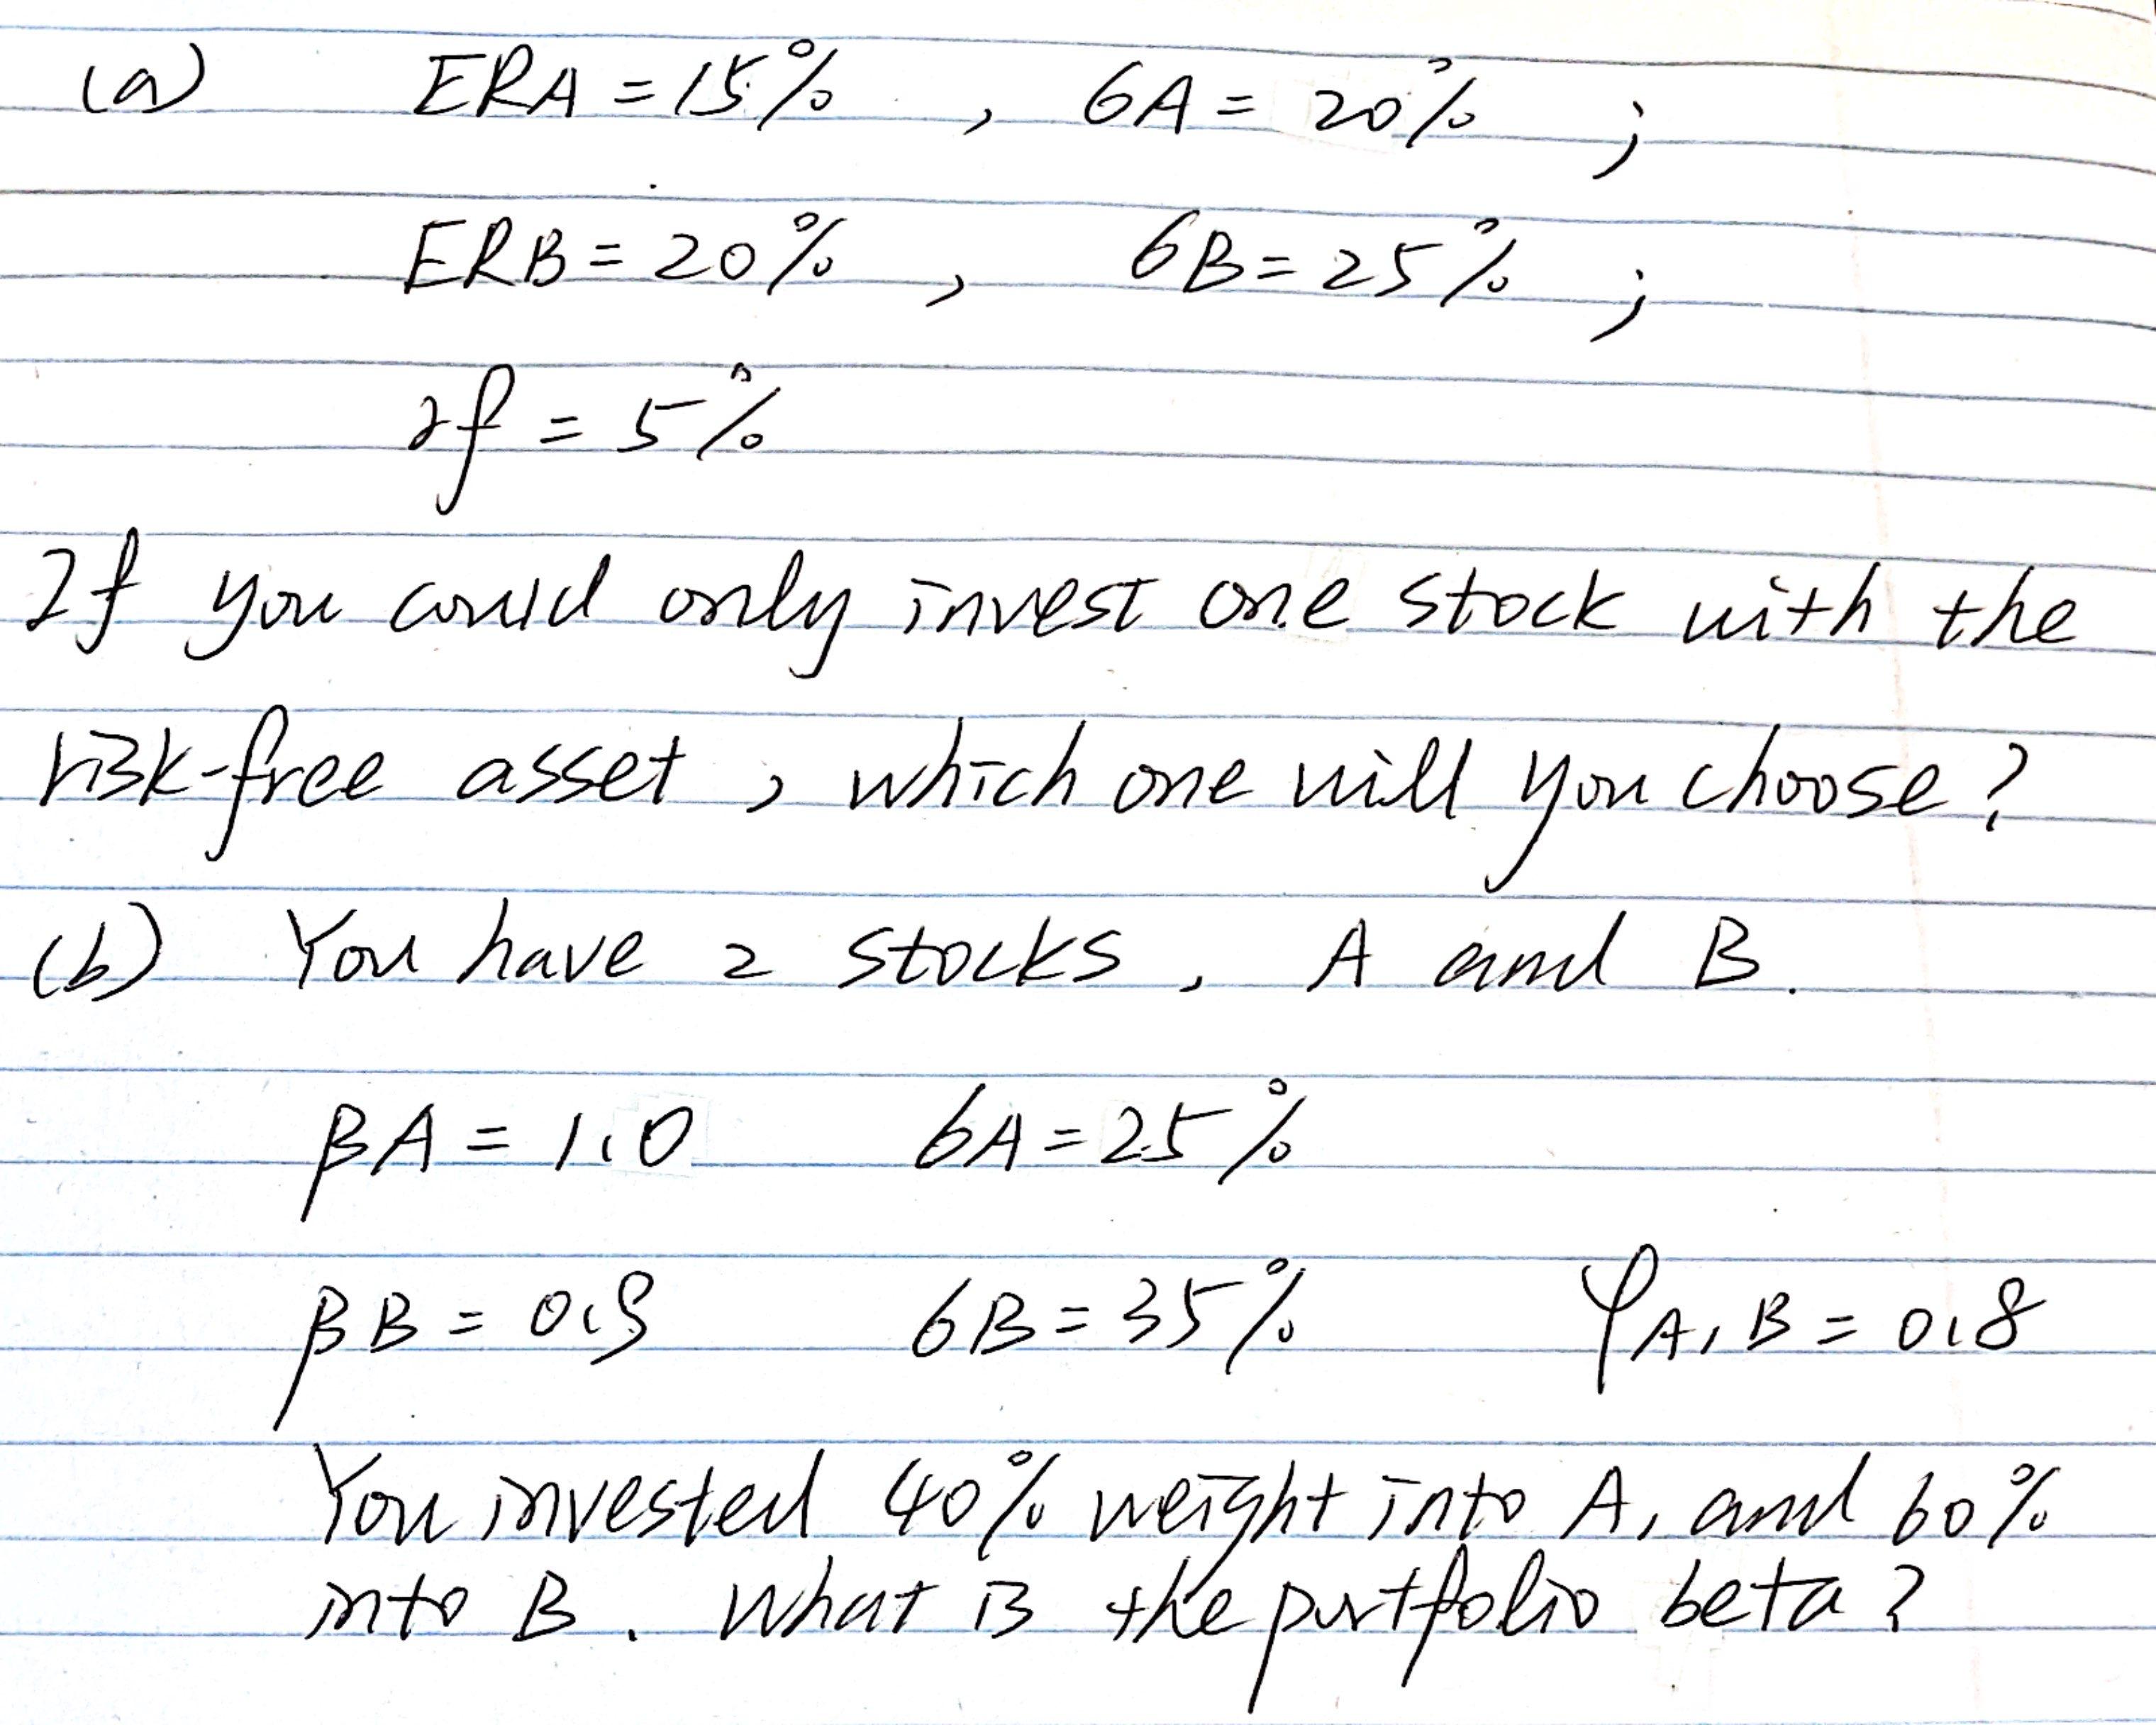 (a) ERA = 15% , σA = 20% ;
ERB = 20% , σB = 25% ;
rf = 5%
If you could only invest one stock with the
risk-free asset , which one will you choose?
(b) You have 2 stocks, A and B.
βA = 1.0 σA = 25%
βB = 0.9 σB = 35% ρA,B = 0.8
You invested 40% weight into A, and 60%
into B. What is the portfolio beta?